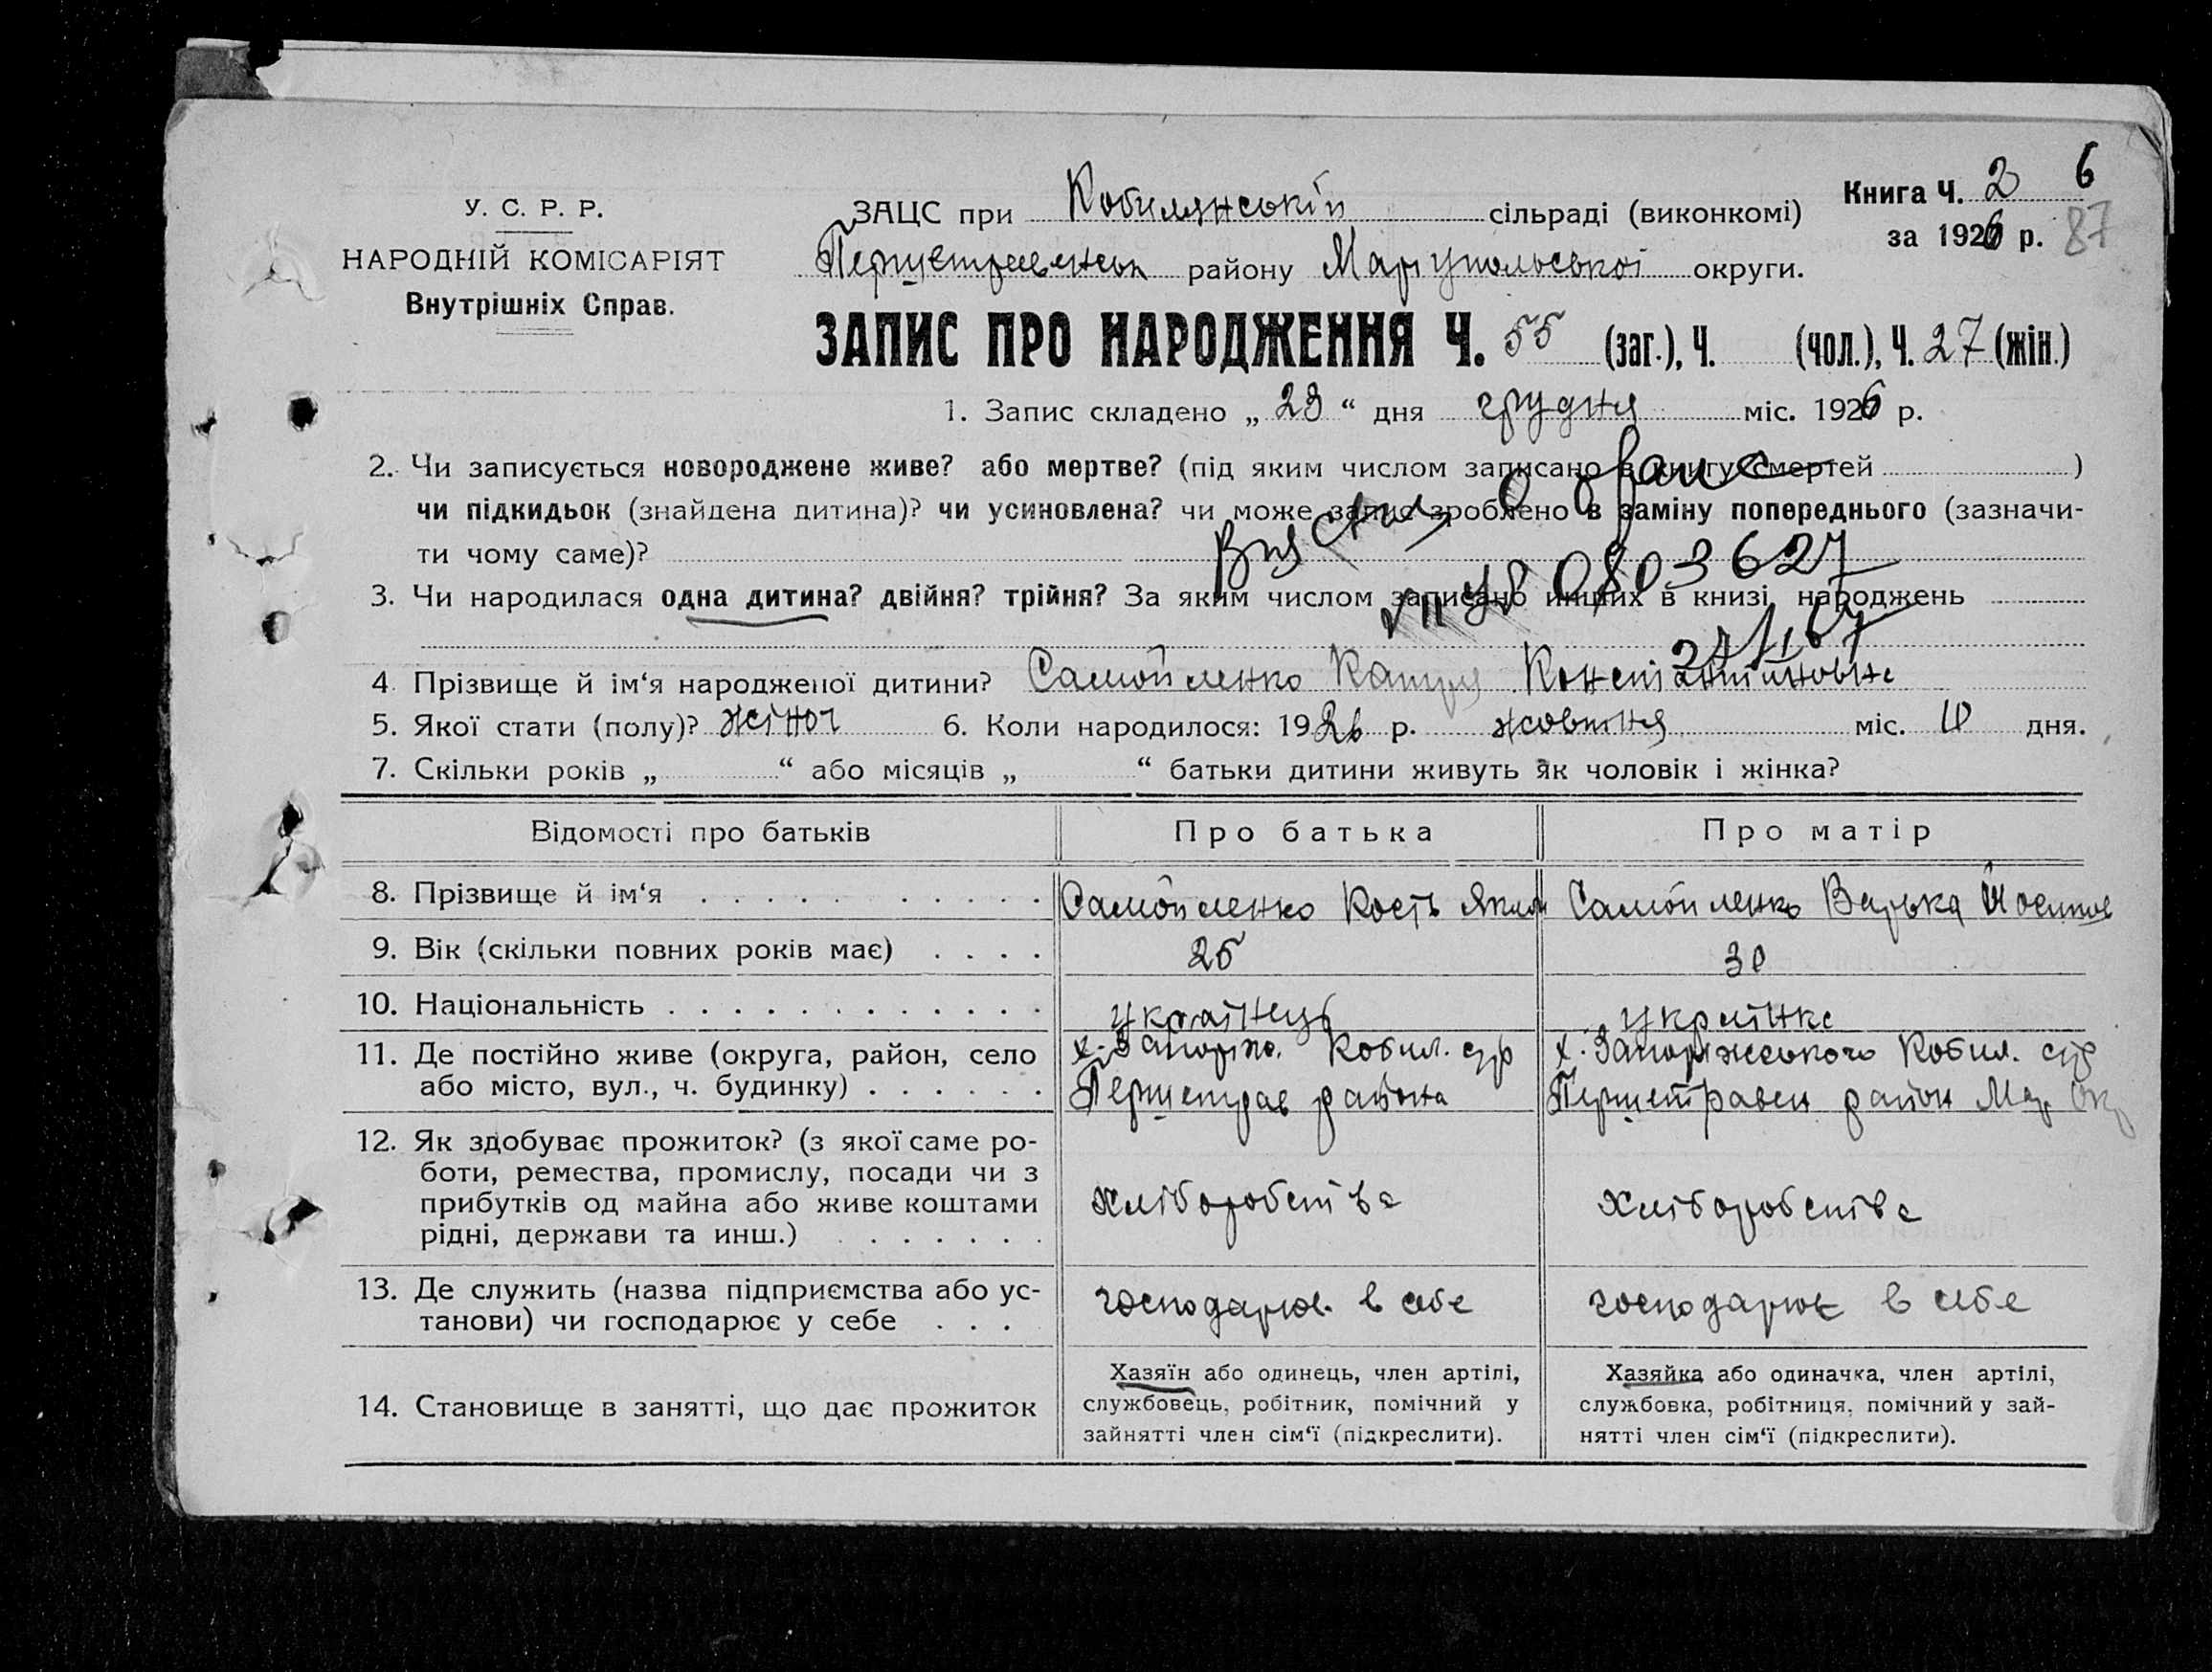 У. С. Р. Р.
НАРОДНІЙ КОМІСАРІЯТ
Внутрішніх Справ.
ЗАЦС при Кобилянській сільраді (виконкомі)
Книга Ч. 2 6
за 1926 р. 87
району Маріупольської округи.
ЗАПИС ПРО НАРОДЖЕННЯ Ч. 55 (заг.), Ч. (чол.), Ч. 27 (жін.)
1. Запис складено „ 23 “ дня грудня міс. 1926 р.
2. Чи записується новороджене живе? або мертве? (під яким числом записано в книгу смертей )
чи підкидьок (знайдена дитина)? чи усиновлена? чи може запис зроблено в заміну попереднього (зазначи-
ти чому саме)?
0803627
3. Чи народилася одна дитина? двійня? трійня? За яким числом записано инших в книзі народжень
4. Прізвище й ім‘я народженої дитини? Самойленко Катря Констянтиновна
5. Якої стати (полу)? жіноч 6. Коли народилося: 1926 р. жовтня міс. 10 дня.
7. Скільки років „ “ або місяців „ “ батьки дитини живуть як чоловік і жінка?
Відомості про батьків Про батька Про матір
8. Прізвище й ім‘я Самойленко Кость Яким Самойленко Варька Йосипов
9. Вік (скільки повних років має) 25 30
10. Національність українець українка
11. Де постійно живе (округа, район, село х. Запоріж. Кобил. с/р х. Запоріжського Кобил. с/р
або місто, вул., ч. будинку) Першетрав района Першетравен район Мар Окр
12. Як здобуває прожиток? (з якої саме ро-
боти, ремества, промислу, посади чи з
прибутків од майна або живе коштами
рідні, держави та инш.)
хліборобства хліборобства
13. Де служить (назва підприємства або ус-
танови) чи господарює у себе
господарює в себе господарює в себе
14. Становище в занятті, що дає прожиток
Хазяїн або одинець, член артілі,
службовець, робітник, помічний у
зайнятті член сім‘ї (підкреслити).
Хазяйка або одиначка, член артілі,
службовка, робітниця, помічний у зай-
нятті член сім‘ї (підкреслити).